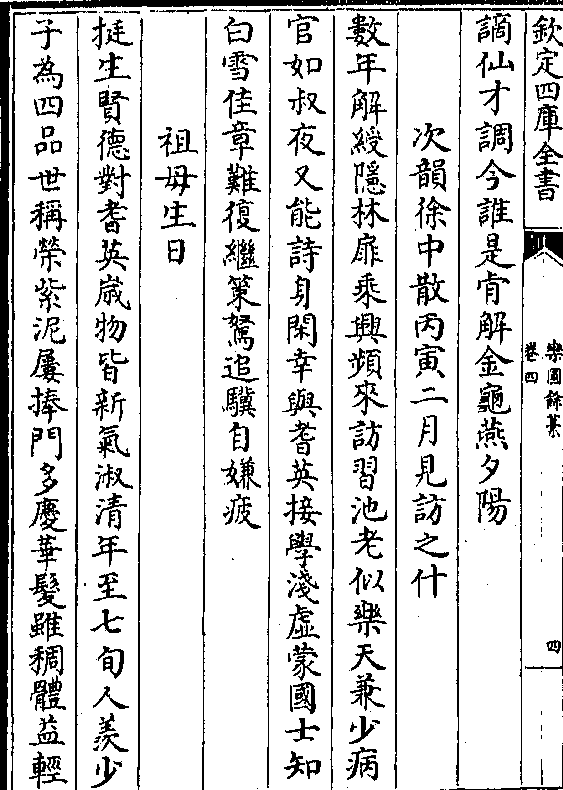 欽定四庫全書
樂圃餘藁
卷四
四
謫仙才調今誰是肯解金龜燕夕陽
次韻徐中散丙寅二月見訪之什
數年解綬隱林扉乘興頻來訪習池老似樂天兼少病
官如叔夜又能詩身閑幸與耆英接學淺虛蒙國士知
白雪佳章難復繼策駑追驥自嫌疲
祖母生日
挺生賢德對耆英嵗物皆新氣淑清年至七旬人羨少
子為四品世稱榮紫泥屢捧門多慶華髮雖稠體益輕